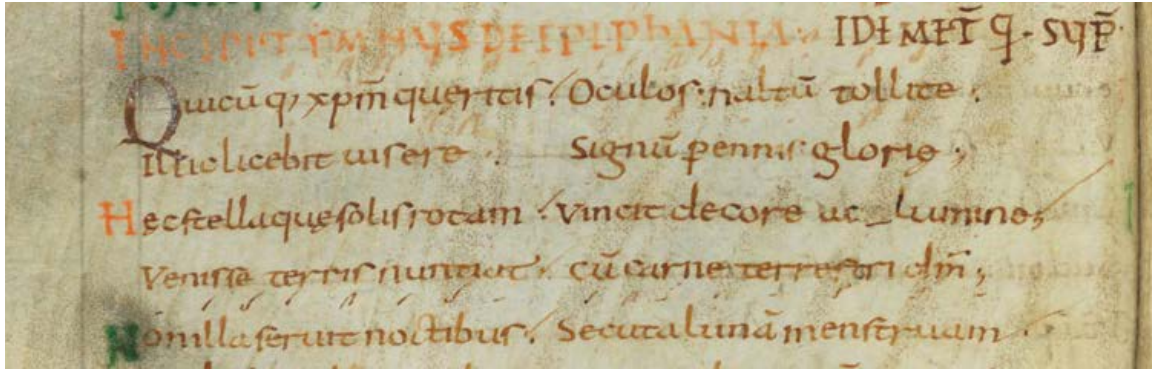 INCIPIT YMNUS DE EPIPHANIA· IDE MET̄ q̄· SUP̄·
Quicū q; xp̄m queritis · Oculos in altū tollite ·
Illic licebit uisere · Signū p̄ennis glorię ;
Hec stella quę solis rotam · Vincit decore ac lumine ;
Venisse terris nuntiat · cū carne terrestri dm̄ ;
Non illa seruit noctibus · Secuta lunā menstruam ·